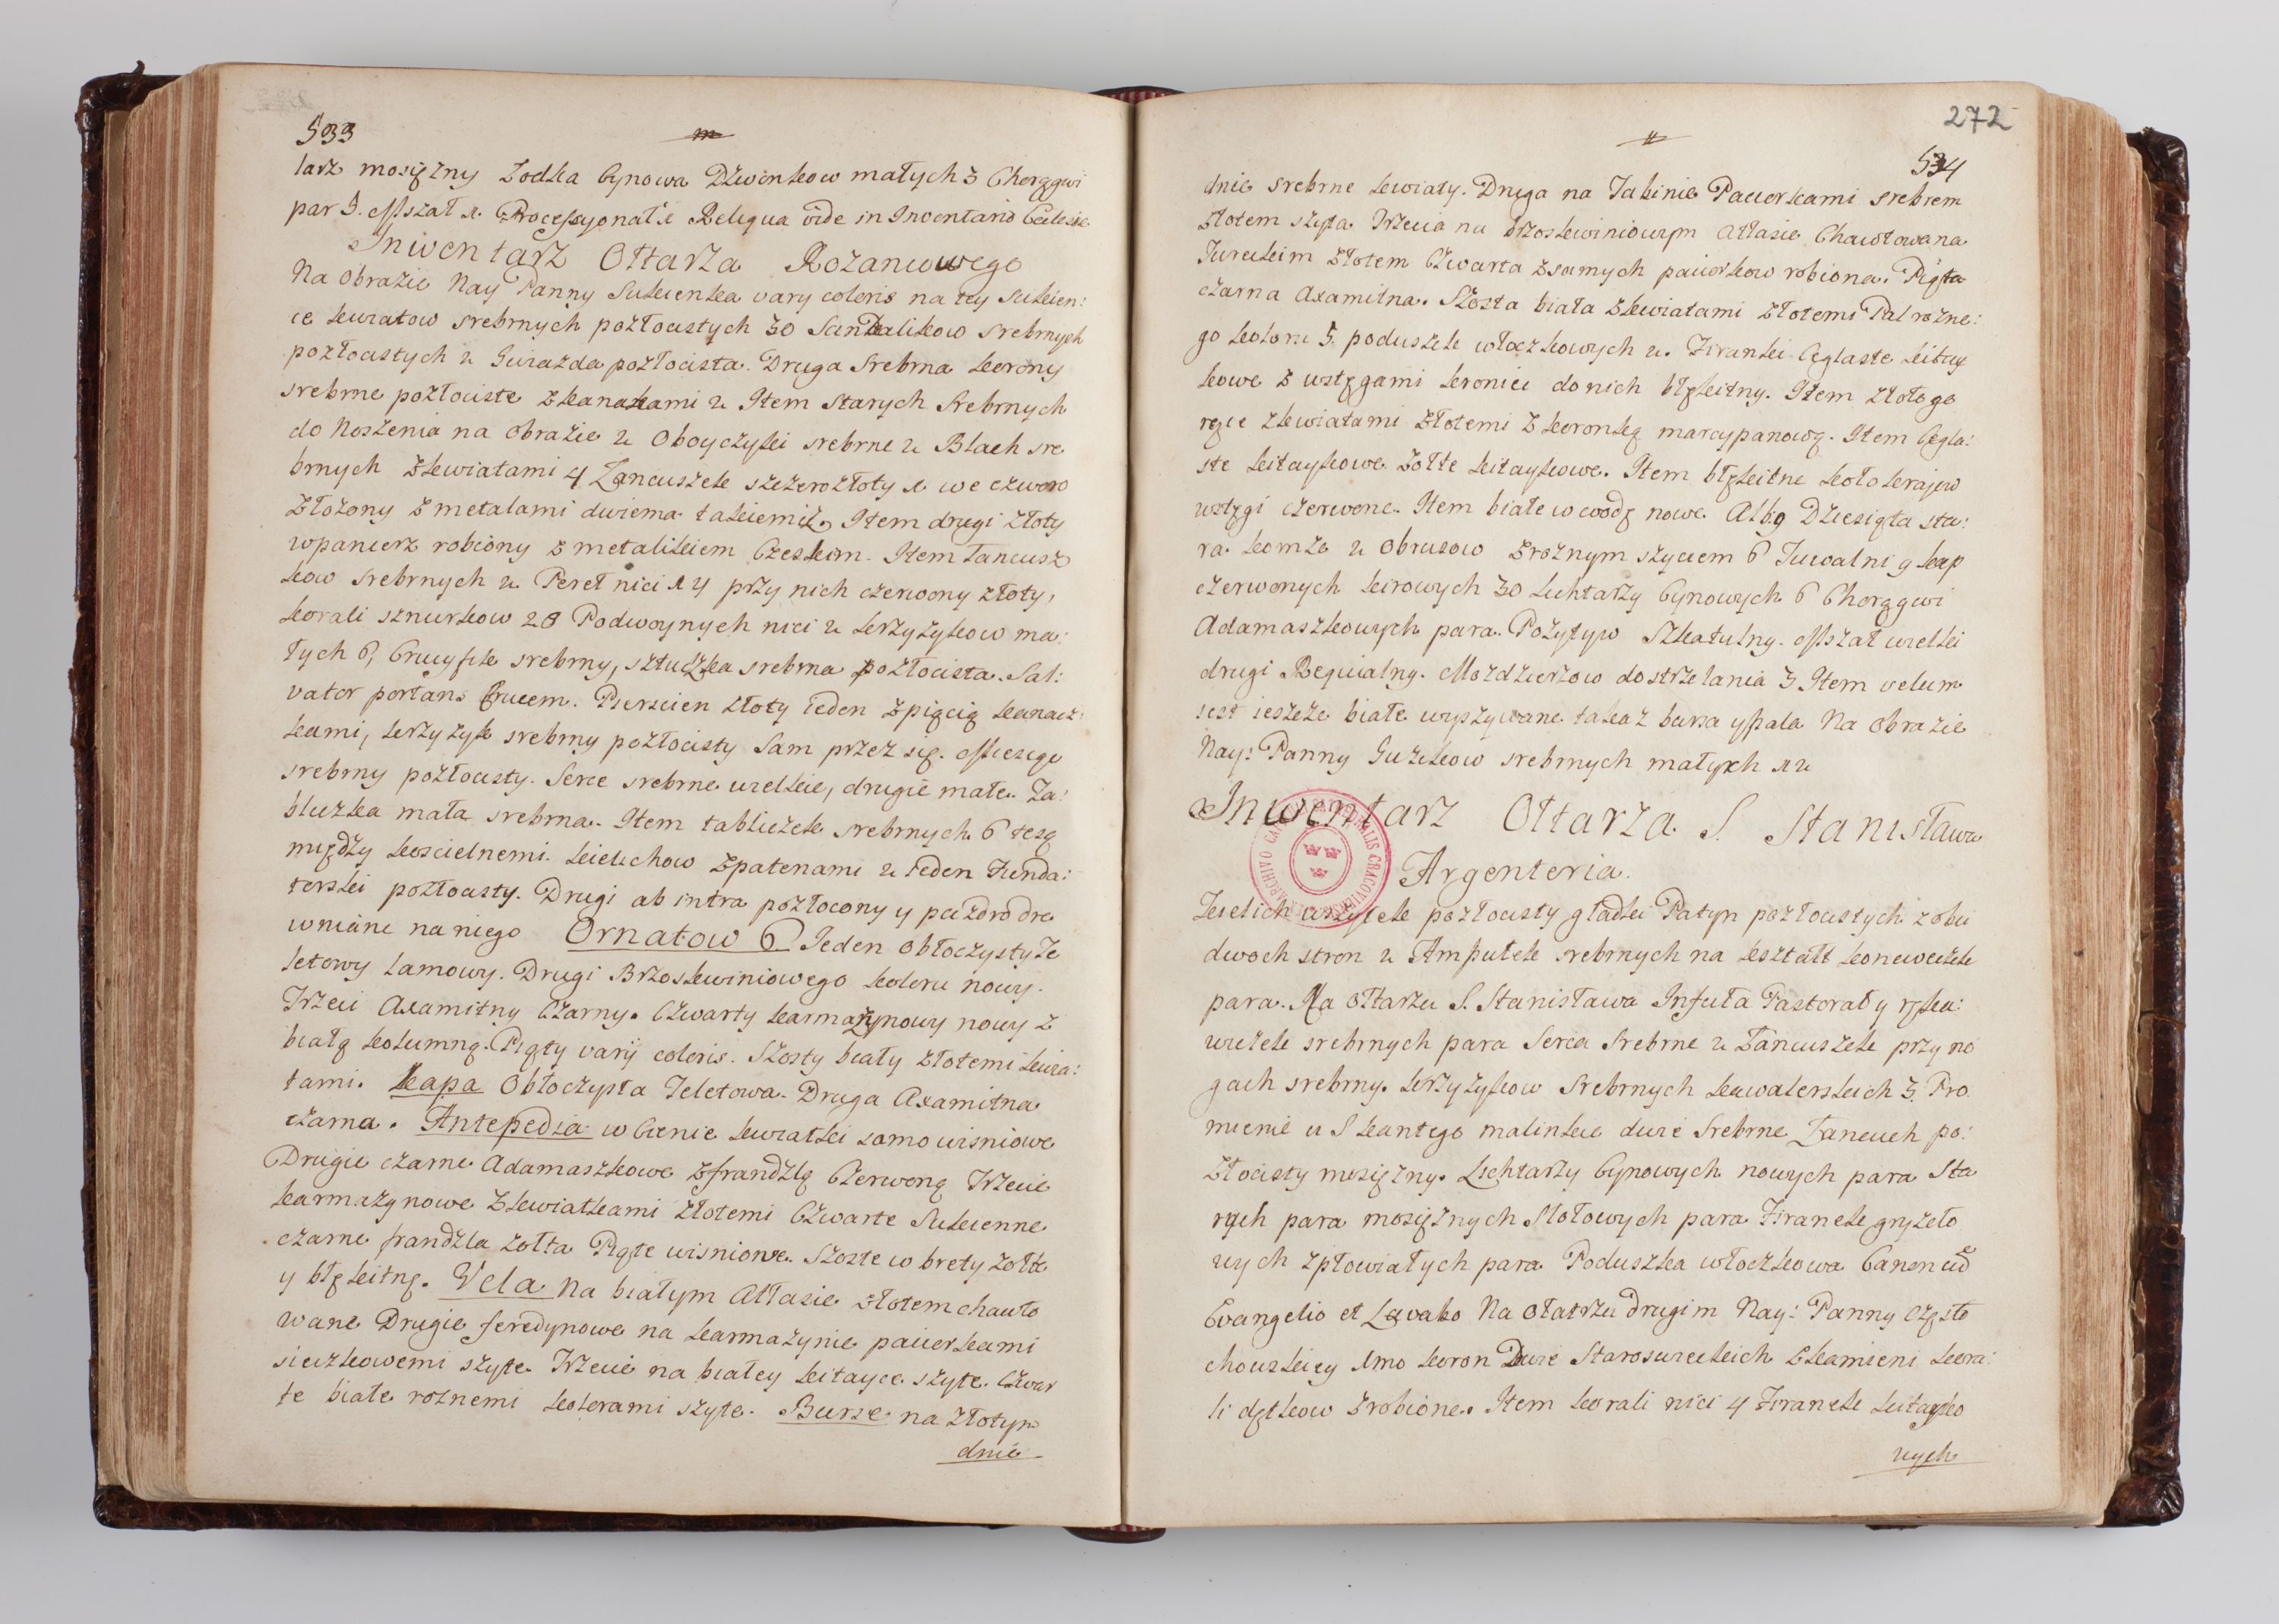 533
larz mosiężny Łodka Cynowa Dzwonkow małych 3 Chorągwi
par 5. Mszał 1. Processyonał 1 Reliqua vide in Inventario Ecclesiae
Inwentarz Ołtarza Rozancowego
Na Obrazie Nay Panny Sukienka vary coloris na tey Sukien:
ce kwiatow srebrnych pozłocistych 30 Sandalikow srebrnych
pozłocistych 2 Gwiazda pozłocista. Druga Srebrna korony
srebrne pozłociste z kanakami 2 Item starych Srebrnych
do Noszenia na obrazie 2 Oboyczyki srebrne 2 Blach sre
brnych z kwiatami 4 Łancuszek szczerozłoty 1 we czworo
złożony z metalami dwiema takiemiż, Item drugi złoty
w pancerz robiony z metalikiem Czeskim. Item łancusz
kow srebrnych 2. Pereł nici 14 przy nich czerwony złoty,
korali sznurkow 28 Podwoynych nici 2 krzyżykow ma:
łych 6, Crucyfik srebrny, sztuczka srebrna pozłocista. Sal:
vator portans Crucem. Pierscien złoty ieden z piącią kanacz:
kami, krzyżyk srebrny pozłocisty Sam przez się. Miesiąc
srebrny pozłocisty. Serce srebrne wielkie, drugie małe. Ta:
bliczka mała srebrna. Item tabliczek srebrnych 6 tesą
między koscielnemi. kielichow z patenami 2 ieden Funda:
torski pozłocisty. Drugi ab intra pozłocony y puzdro dre
wniane na niego Ornatow 6 Jeden Obłoczysty Te
letowy lamowy. Drugi Brzoskwiniowego koloru nowy.
Trzeci Axamitny Czarny. Czwarty karmazynowy nowy z
białą kolumną. Piąty varij coloris. Szosty biały złotemi kwia:
tami. Kapa Obłoczysta Teletowa. Druga Axamitna
czarna. Antepedia w Cienie kwiatki samo wisniowe
Drugie czarne Adamaszkowe z frandzlą Czerwoną Trzecie
karmazynowe z kwiatkami złotemi Czwarte Sukienne
czarne frandzla zołta Piąte wisniowe. Szoste w brety zołte
y błękitnę. Vela Na białym Atłasie złotem chawto
wane Drugie feredynowe na karmazynie paciorkami
sieczkowemi szyte Trzecie na białey kitayce szyte. Czwar
te białe roznemi kolorami szyte. Burse na złotym
dnie
272
534
dnie srebrne kwiaty. Druga na Tabinie Paciorkami srebrem
złotem szyta Trzecia na brzoskwiniowym atłasie Chawtowana
Tureckim złotem Czwarta z samych paciorkow robiona. Piąta
czarna Axamitna. Szosta biała z kwiatami złotemi Pal rozne:
go koloru 5. poduszek włoczkowych 2. Firanki Ceglaste kitay
kowe z wstęgami koronki do nich błękitny. Item złotogo
rące z kwiatami złotemi z koronką marcypanową. Item Cegla:
ste kitaykowe zołte kitaykowe. Item błękitne koło kraiow
wstęgi czerwone. Item białe w wodę nowe. Alb 9 Dziesiąta sta:
ra komże 2 Obrusow z roznym szyciem 6 Tuwalni 9 kap
czerwonych kirowych 30 Lichtarzy Cynowych 6 Chorągwi
Adamaszkowych para. Pozytyw Szkatulny. Mszał wielki
drugi Requialny. Mozdzierzow do strzelania 3. Item velum
iest ieszcze białe wyszywane także z bursa y pala Na Obrazie
Nay: Panny Guzikow srebrnych małych 12
Inwentarz Ołtarza S. Stanisława
Argenteria.
Kielich wszytek pozłocisty gładki Patyn pozłocistych z obu
dwoch stron 2 Ampułek srebrnych na kształt koneweczek
para. Na Ołtarzu S. Stanisława Infuła Pastorał y ręka:
wiczek srebrnych para Serca Srebrne 2 Łancuszek przy no
gach srebrny. krzyżykow Srebrnych kawalerskich 3. Pro
mienie u S kantego malinkie dwie Srebrne Łancuch po:
złocisty mosiężny. Lichtarzy Cynowych nowych para Sta
rych para mosiężnych Stołowych para Firanek gryzeto
wych zpłowiałych para Poduszka włoczkowa Canon cũ
Evangelio et Lavabo Na Ołtarzu drugim Nay: Panny Często
chowskiey 1mo koron Dwie Staroswieckich z kamieni kora:
li dętkow zrobione. Item korali nici 4 Firanek kitayko
wych
ARCHIVO CAPITULI CATHEDRALIS CRACOVIENSIS